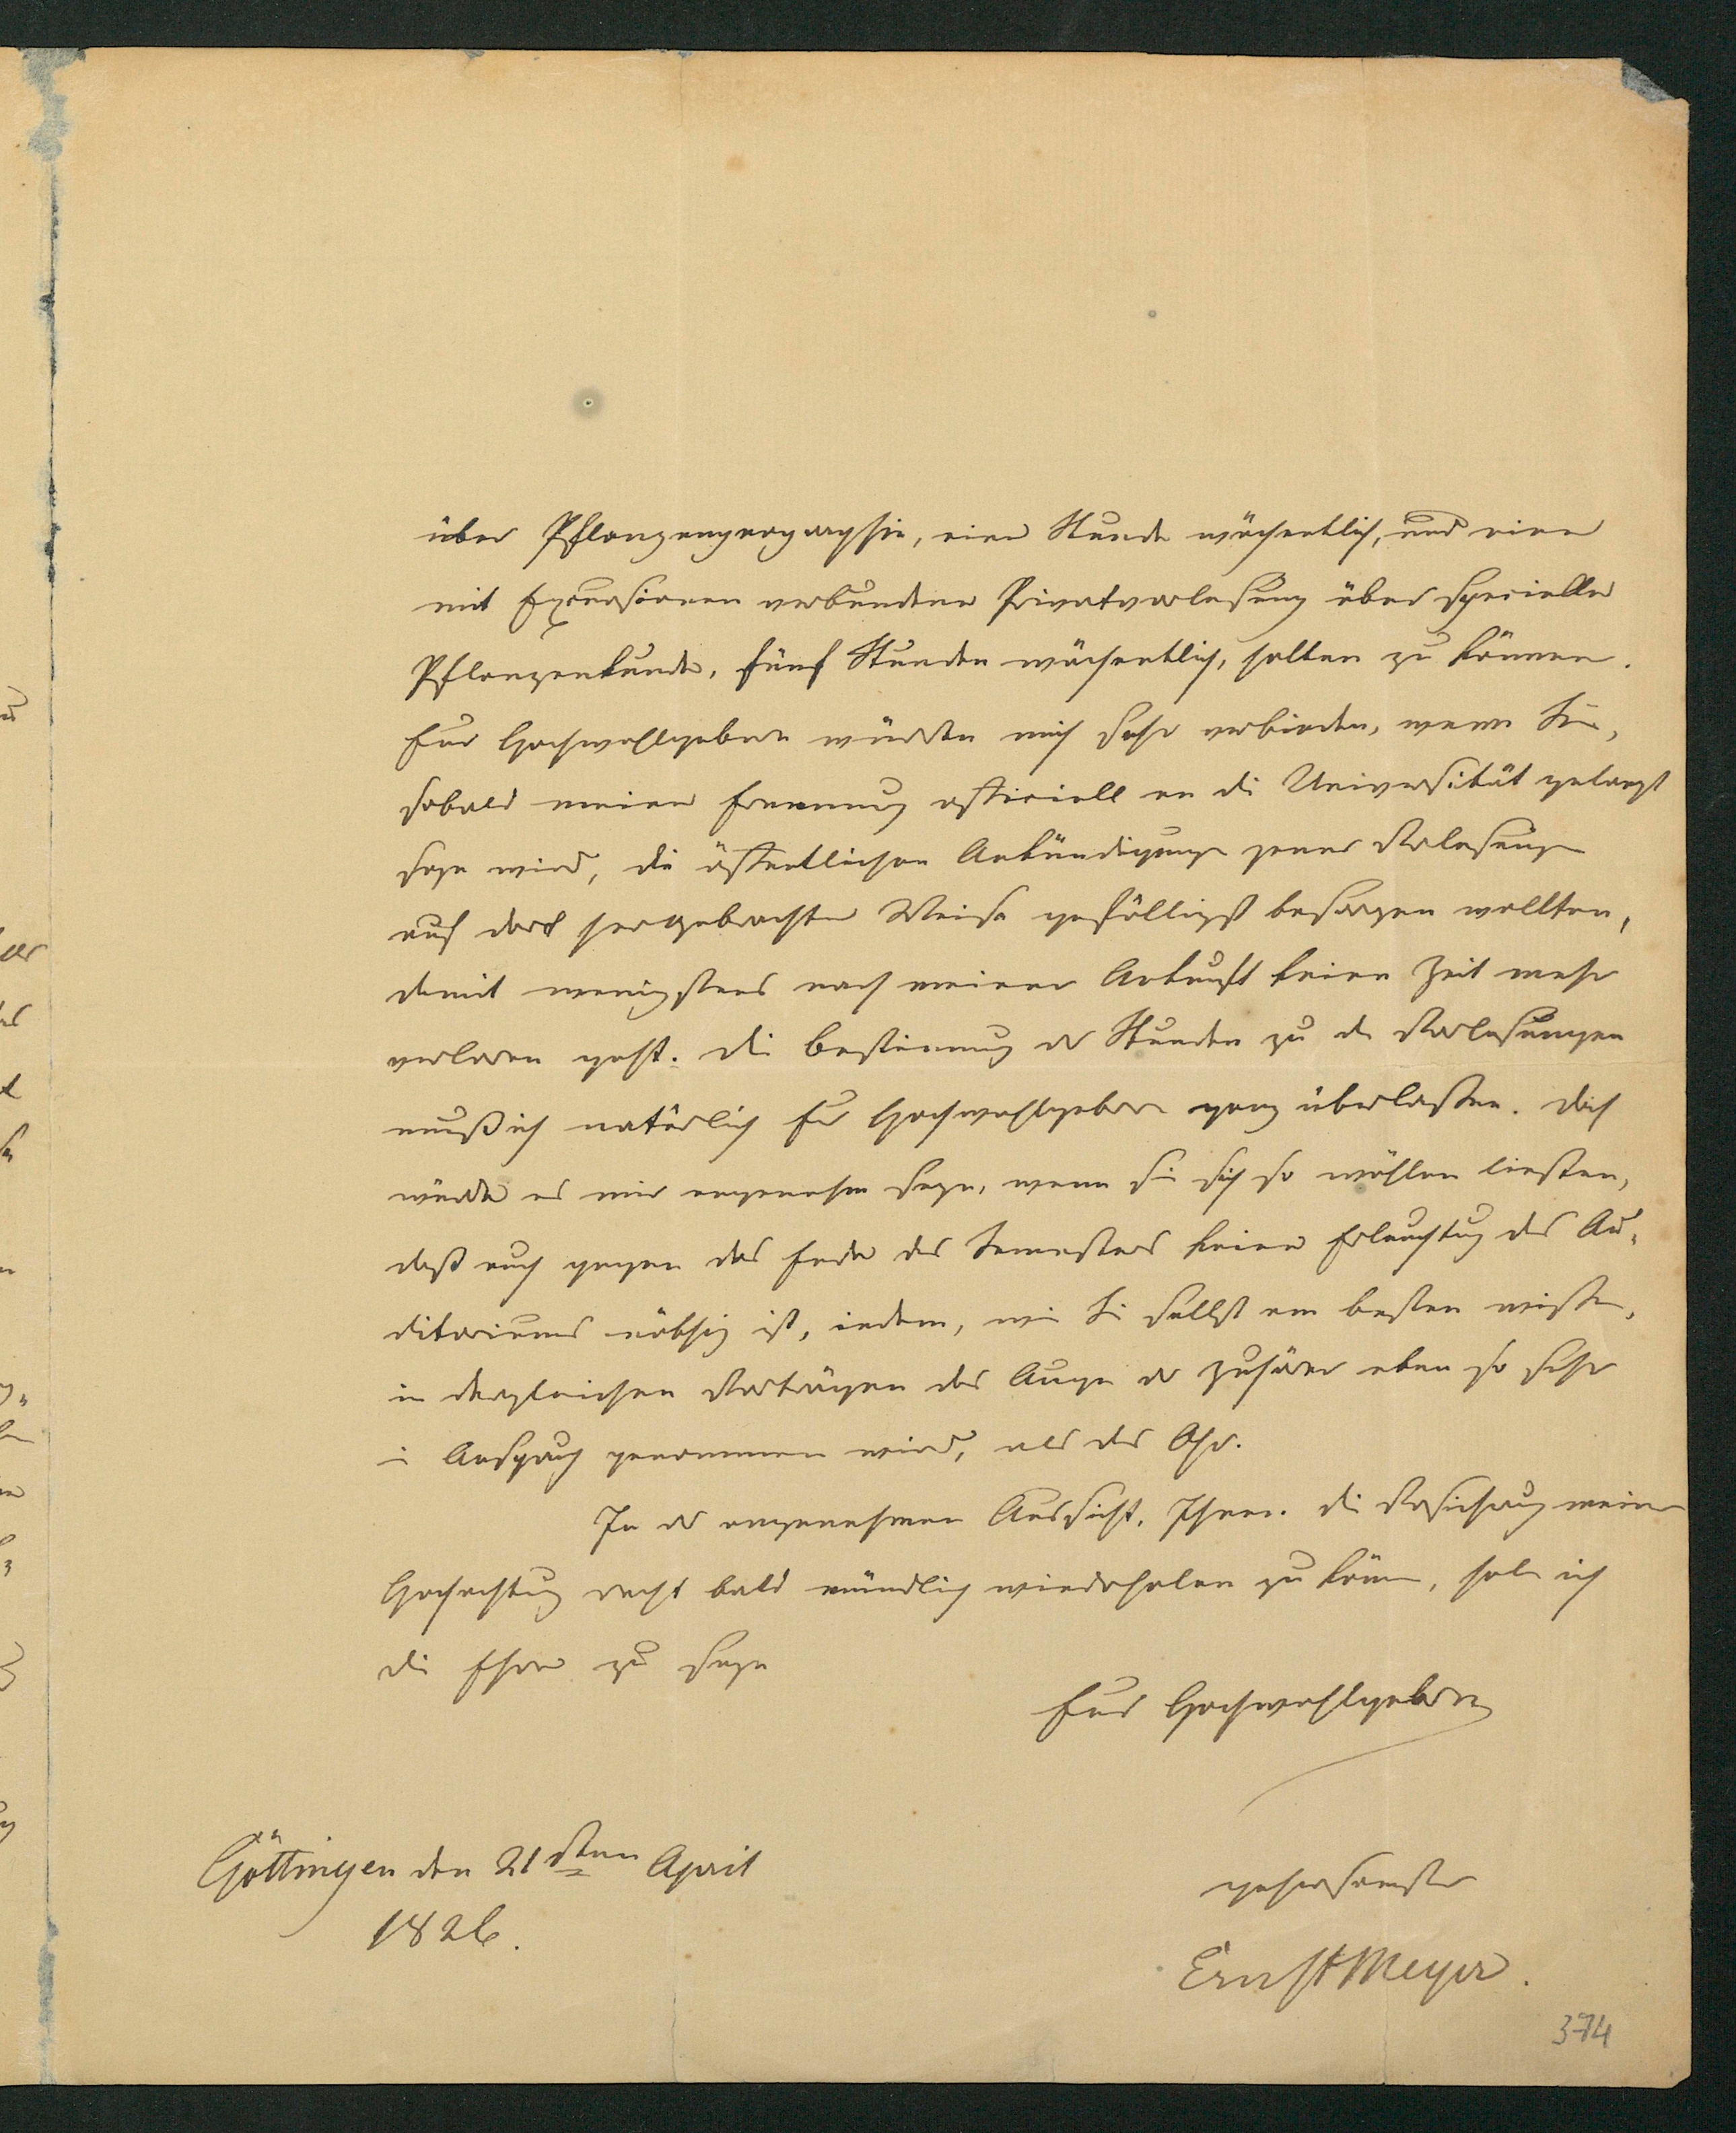 über Pflanzengeographie, eine Stunde wöchentlich, und eine
mit Excursionen verbundene Privatvorlesung über specielle
Pflanzenkunde, fünf Stunden wöchentlich, halten zu können.
Eur Hochwohlgeboren würden mich sehr verbinden, wenn Sie,
sobald meine Ernennung officiell an die Universität gelangt
seyn wird, die öffentlichen Ankündigungen jener Vorlesungen
auf dort hergebrachte Weise gefälligst besorgen wollten,
damit wenigstens nach meiner Ankunft keine Zeit mehr
verloren geht. Die Bestimmung der Stunden zu den Vorlesungen
muß ich natürlich Eur Hochwohlgeboren ganz überlassen. Doch
würde es mir angenehm seyn, wenn sie sich so wählen liessen,
daß auch gegen das Ende des Semesters keine Erleuchtung des Au-
ditoriums nöthig ist, indem, wie Sie selbst am besten wissen,
in dergleichen Vorträgen das Auge der Zuhörer eben so sehr
in Anspruch genommen wird, als das Ohr.
In der angenehmen Aussicht, Ihnen die Versicherung meiner
Hochachtung recht bald mündlich wiederholen zu können, habe ich
die Ehre zu seyn
Eur Hochwohlgeboren
Göttingen den 21sten April
1826.
gehorsamster
Ernst Meyer.
374